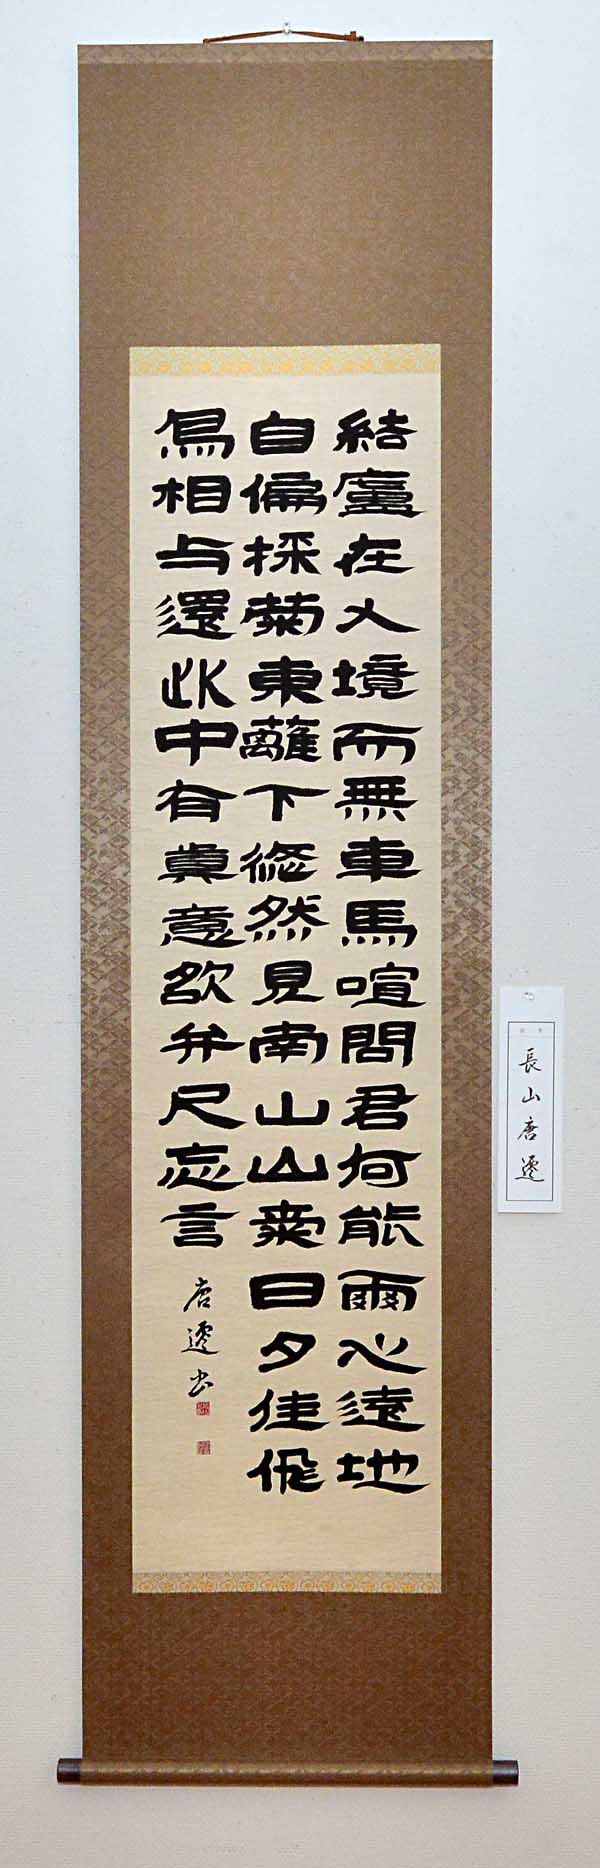 結廬在人境而無車馬喧問君何能爾心遠地
自偏採菊東籬下悠然見南山山氣日夕佳飛
鳥相与還此中有真意欲弁已忘言
唐遷書
長山唐遷